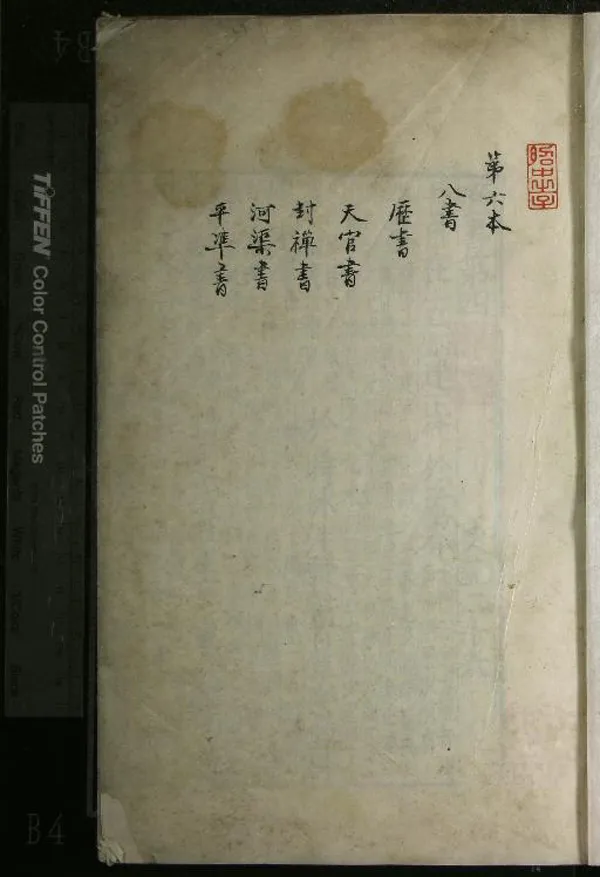 第六本
八書
歴書
天官書
封禅書
河渠書
平準書
TIFFEN Color Control Patches
B4